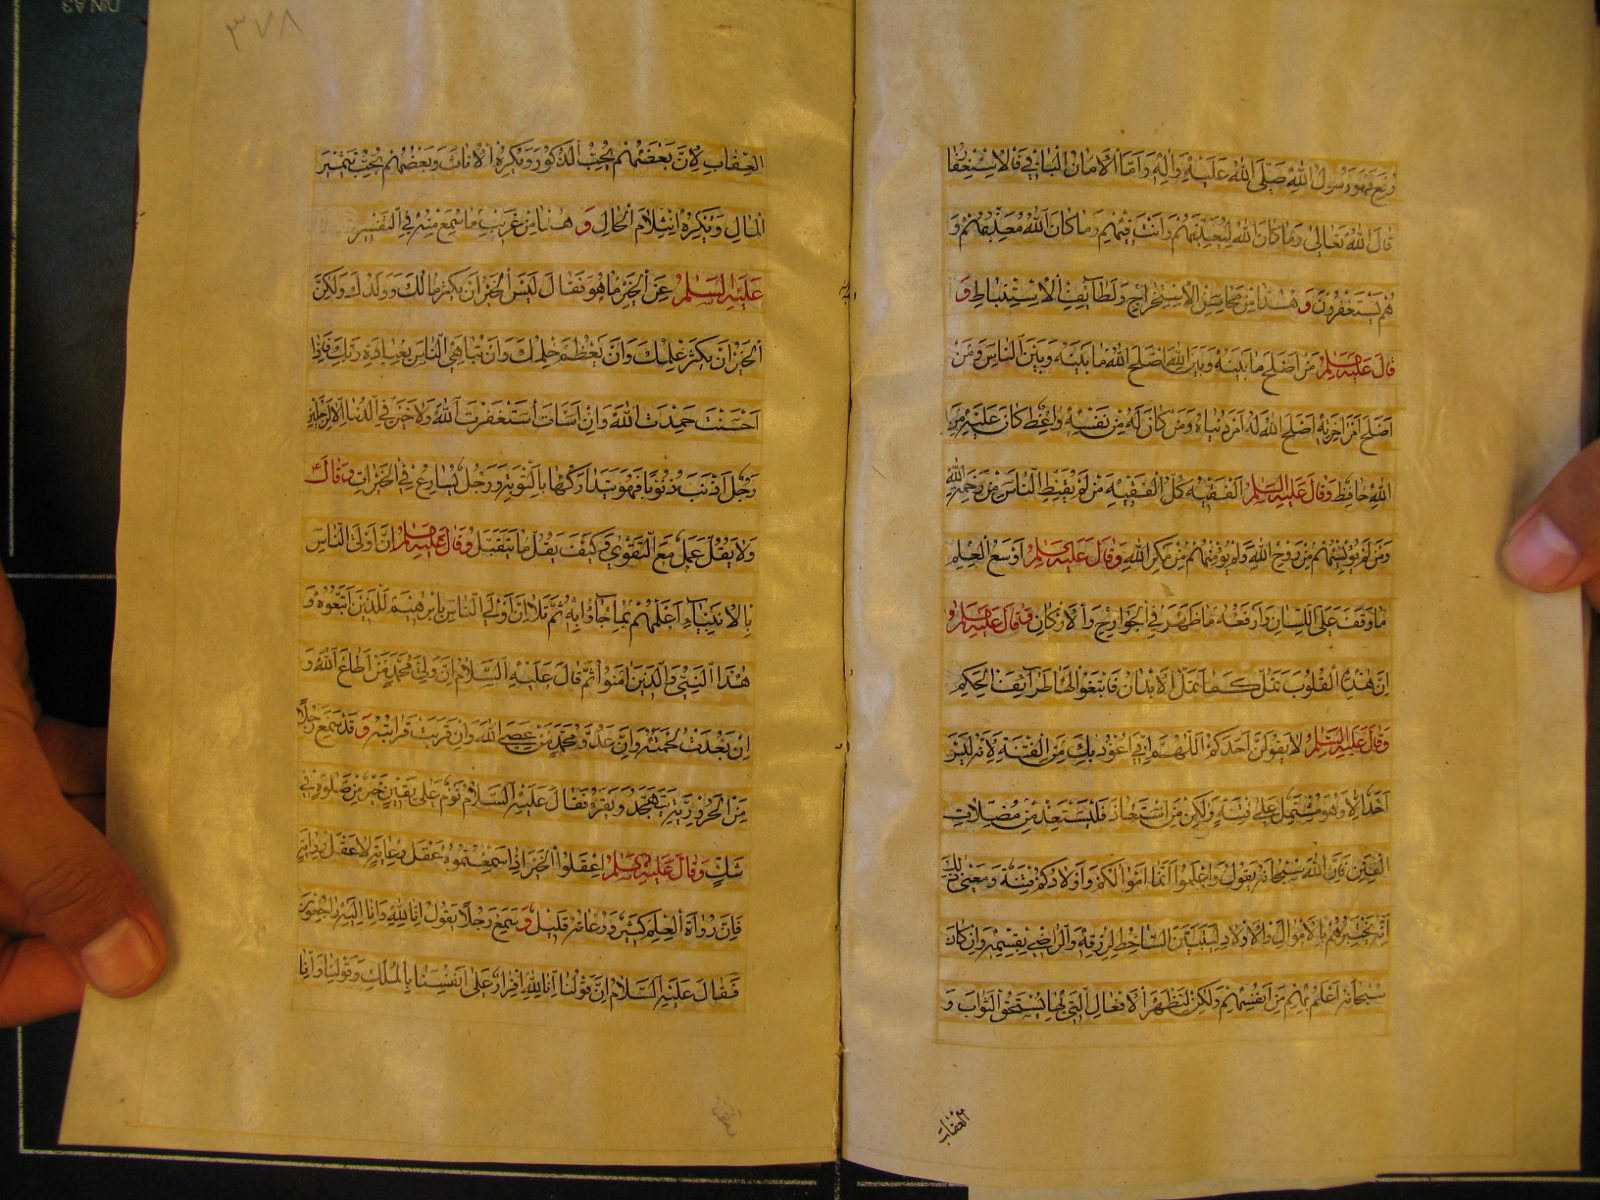 رفع فهو رسول الله صلى الله عليه واله واما الامان الباقي فالاستغفار
قال الله تعالى وما كان الله ليعذبهم وانت فيهم وما كان الله معذبهم و
هم يستغفرون و هذا من محاسن الاستخراج ولطائف الاستنباط و
قال عليه السلم من اصلح ما بينه وبين الله اصلح الله ما بينه وبين الناس ومن
اصلح امر اخرته اصلح الله له امر دنياه ومن كان له من نفسه واعظ كان عليه من
الله حافظ وقال عليه السلم الفقيه كل الفقيه من لم يقنط الناس من رحمة الله
ومن لم يؤيسهم من روح الله ولم يؤمنهم من مكر الله وقال عليه السلم اوضع العلم
ما وقف على اللسان وارفعه ما ظهر في الجوارح والاركان وقال عليه السلم
ان هذه القلوب تمل كما تمل الابدان فابتغوا لها طرائف الحكم
وقال عليه السلم لا يقولن احدكم اللهم اني اعوذ بك من الفتنة لانه ليس
احد الا وهو مشتمل على فتنة ولكن من استعاذ فليستعذ من مضلات
الفتن فان الله سبحانه يقول واعلموا انما اموالكم واولادكم فتنة ومعنى ذلك
انه يختبرهم بالاموال والاولاد ليتبين الساخط لرزقه والراضي بقسمه وان كان
سبحانه اعلم بهم من انفسهم ولكن لتظهر الافعال التي بها يستحق الثواب و
العقاب
٣٧٨
العقاب لان بعضهم يحب الذكور ويكره الاناث وبعضهم يحب تثمير
المال ويكره انثلام الحال و هذا من غريب ما سمع منه في التفسير
عليه السلم عن الخير ما هو فقال ليس الخير ان يكثر مالك وولدك ولكن
الخير ان يكثر علمك وان يعظم حلمك وان تباهي الناس بعبادة ربك فاذا
احسنت حمدت الله وان اسأت استغفرت الله ولا خير في الدنيا الا لرجلين
رجل اذنب ذنوبا فهو يتداركها بالتوبة ورجل يسارع في الخيرات وقال ع
ولا يقل عمل مع التقوى وكيف يقل ما يتقبل وقال عليه السلم ان اولى الناس
بالانبياء اعلمهم بما جاؤا به ثم تلا ان اولى الناس بابرهيم للذين اتبعوه و
هذا النبي والذين امنوا ثم قال عليه السلام ان ولي محمد من اطاع الله و
ان بعدت لحمته وان عدو محمد من عصى الله وان قربت قرابته و قد سمع رجلا
من الحرورية يتهجد ويقرء فقال عليه السلام نوم على يقين خير من صلوة في
شك وقال عليه السلم اعقلوا الخبر اذا سمعتموه عقل رعاية لا عقل رواية
فان رواة العلم كثير ورعاته قليل و سمع رجلا يقول انا لله وانا اليه راجعون
فقال عليه السلام ان قولنا انا لله اقرار على انفسنا بالملك وقولنا وانا